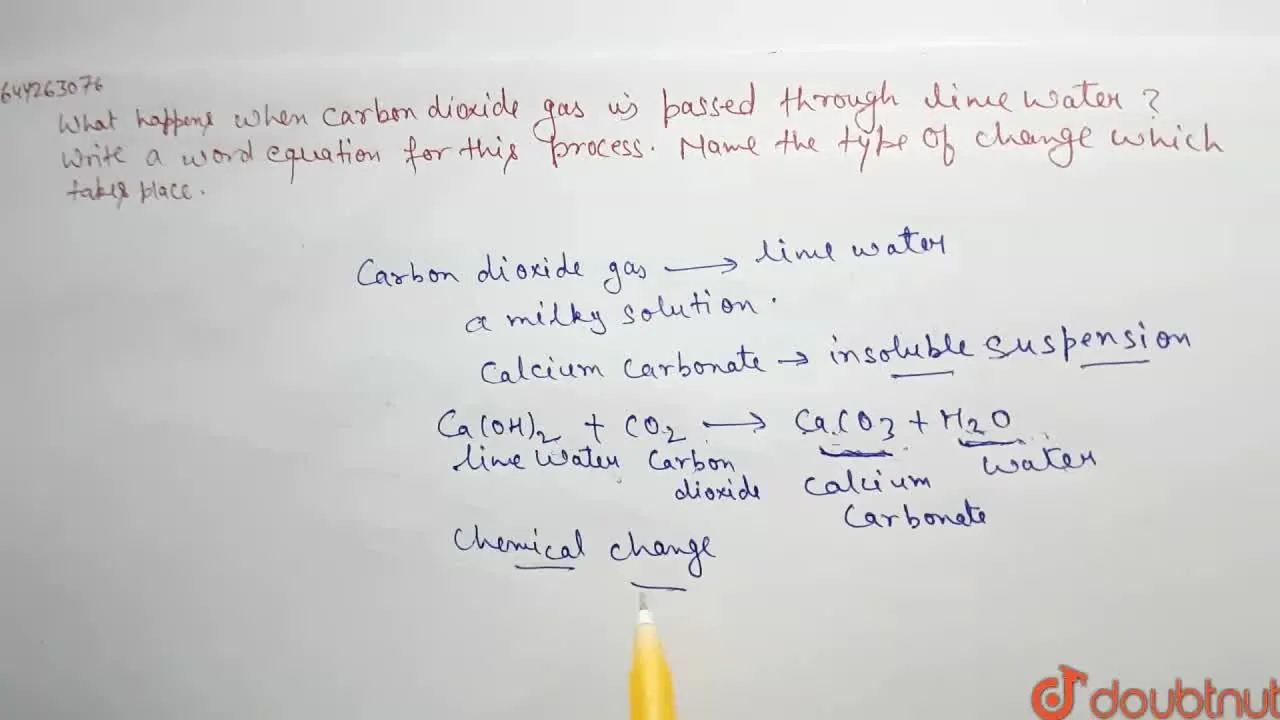 644263076
What happens when carbon dioxide gas is passed through lime water?
Write a word equation for this process. Name the type of change which
takes place.
Carbon dioxide gas → lime water
a milky solution.
Calcium carbonate → insoluble suspension
Ca(OH)2 + CO2 → CaCO3 + H2O
lime water Carbon dioxide Calcium Carbonate water
Chemical change
doubtnut